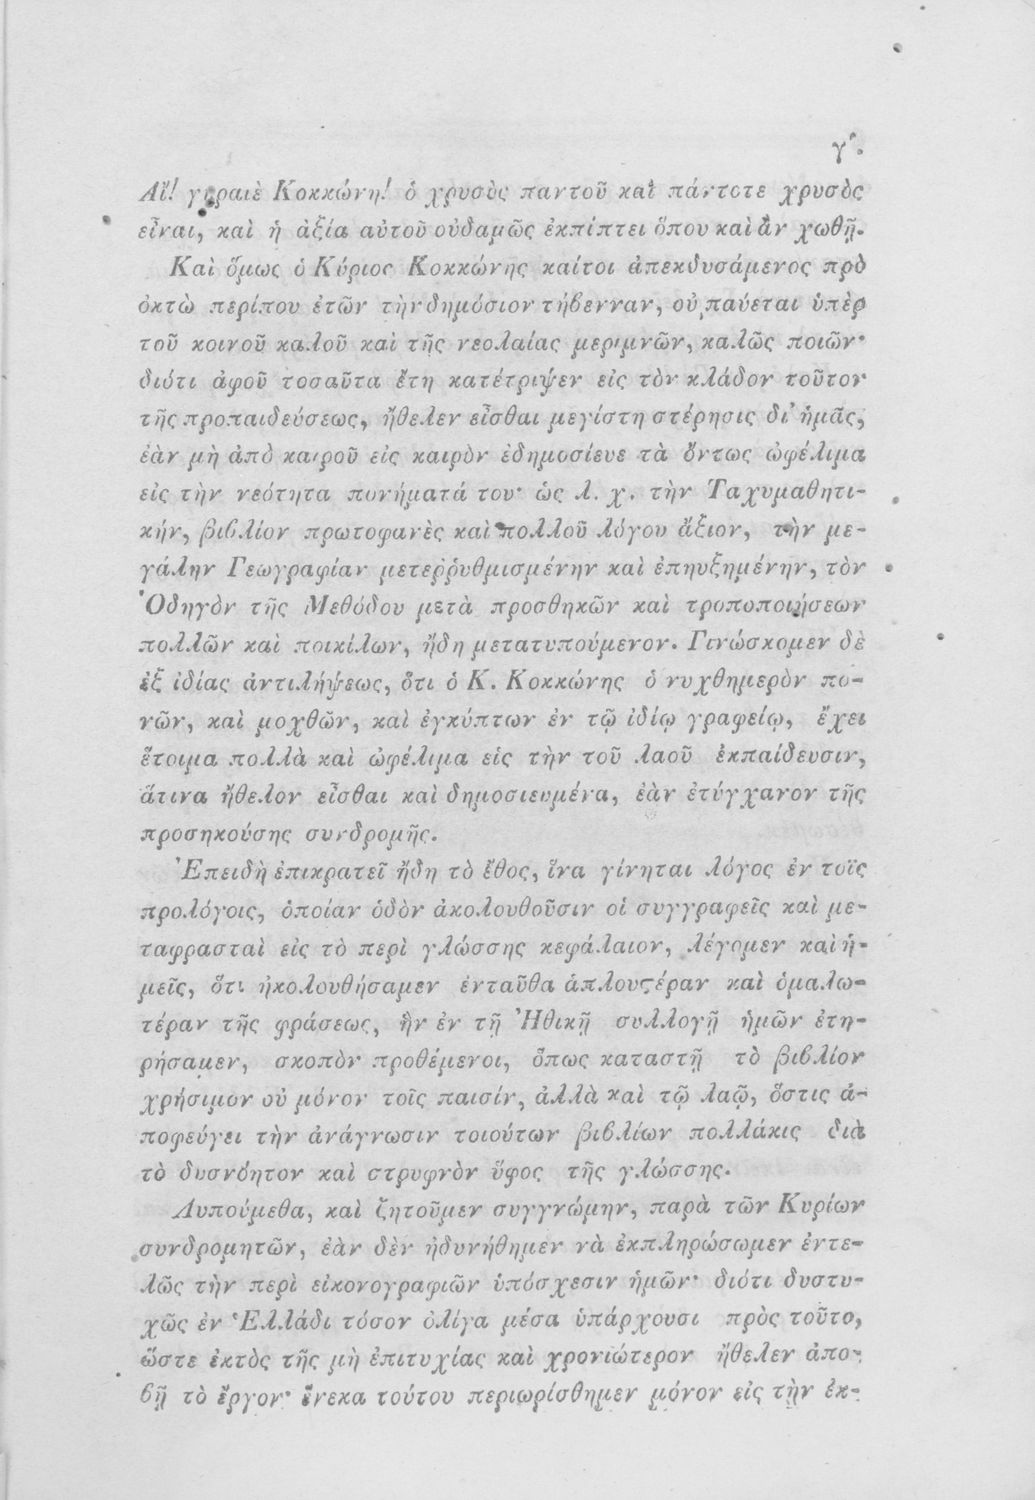 γʹ.
Αἴ! γηραιὲ Κοκκώνη! ὁ χρυσὸς παντοῦ καὶ πάντοτε χρυσὸς
εἶναι, καὶ ἡ ἀξία αὐτοῦ οὐδαμῶς ἐκπίπτει ὅπου καὶ ἂν χωθῇ.
Καὶ ὅμως ὁ Κύριος Κοκκώνης καίτοι ἀπεκδυσάμενος πρὸ
ὀκτὼ περίπου ἐτῶν τὴν δημόσιον τήβενναν, οὐ παύεται ὑπὲρ
τοῦ κοινοῦ καλοῦ καὶ τῆς νεολαίας μεριμνῶν, καλῶς ποιῶν·
διότι ἀφοῦ τοσαῦτα ἔτη κατέτριψεν εἰς τὸν κλάδον τοῦτον
τῆς προπαιδεύσεως, ἤθελεν εἶσθαι μεγίστη στέρησις δι' ἡμᾶς,
ἐὰν μὴ ἀπὸ καιροῦ εἰς καιρὸν ἐδημοσίευε τὰ ὄντως ὠφέλιμα
εἰς τὴν νεότητα πονήματά του· ὡς λ. χ. τὴν Ταχυμαθητι-
κήν, βιβλίον πρωτοφανὲς καὶ πολλοῦ λόγου ἄξιον, τὴν με-
γάλην Γεωγραφίαν μετεῤῥυθμισμένην καὶ ἐπηυξημένην, τὸν
Ὁδηγὸν τῆς Μεθόδου μετὰ προσθηκῶν καὶ τροποποιήσεων
πολλῶν καὶ ποικίλων, ἤδη μετατυπούμενον. Γινώσκομεν δὲ
ἐξ ἰδίας ἀντιλήψεως, ὅτι ὁ Κ. Κοκκώνης ὁ νυχθημερὸν πο-
νῶν, καὶ μοχθῶν, καὶ ἐγκύπτων ἐν τῷ ἰδίῳ γραφείῳ, ἔχει
ἕτοιμα πολλὰ καὶ ὠφέλιμα εἰς τὴν τοῦ λαοῦ ἐκπαίδευσιν,
ἅτινα ἤθελον εἶσθαι καὶ δημοσιευμένα, ἐὰν ἐτύγχανον τῆς
προσηκούσης συνδρομῆς.
Ἐπειδὴ ἐπικρατεῖ ἤδη τὸ ἔθος, ἵνα γίνηται λόγος ἐν τοῖς
προλόγοις, ὁποίαν ὁδὸν ἀκολουθοῦσιν οἱ συγγραφεῖς καὶ με-
ταφρασταὶ εἰς τὸ περὶ γλώσσης κεφάλαιον, λέγομεν καὶ ἡ-
μεῖς, ὅτι ἠκολουθήσαμεν ἐνταῦθα ἁπλουστέραν καὶ ὁμαλω-
τέραν τῆς φράσεως, ἣν ἐν τῇ Ἠθικῇ συλλογῇ ἡμῶν ἐτη-
ρήσαμεν, σκοπὸν προθέμενοι, ὅπως καταστῇ τὸ βιβλίον
χρήσιμον οὐ μόνον τοῖς παισίν, ἀλλὰ καὶ τῷ λαῷ, ὅστις ἀ-
ποφεύγει τὴν ἀνάγνωσιν τοιούτων βιβλίων πολλάκις διὰ
τὸ δυσνόητον καὶ στρυφνὸν ὕφος τῆς γλώσσης.
Λυπούμεθα, καὶ ζητοῦμεν συγγνώμην, παρὰ τῶν Κυρίων
συνδρομητῶν, ἐὰν δὲν ἠδυνήθημεν νὰ ἐκπληρώσωμεν ἐντε-
λῶς τὴν περὶ εἰκονογραφιῶν ὑπόσχεσιν ἡμῶν· διότι δυστυ-
χῶς ἐν Ἑλλάδι τόσον ὀλίγα μέσα ὑπάρχουσι πρὸς τοῦτο,
ὥστε ἐκτὸς τῆς μὴ ἐπιτυχίας καὶ χρονιώτερον ἤθελεν ἀπο-
βῇ τὸ ἔργον· ἕνεκα τούτου περιωρίσθημεν μόνον εἰς τὴν ἐκ-